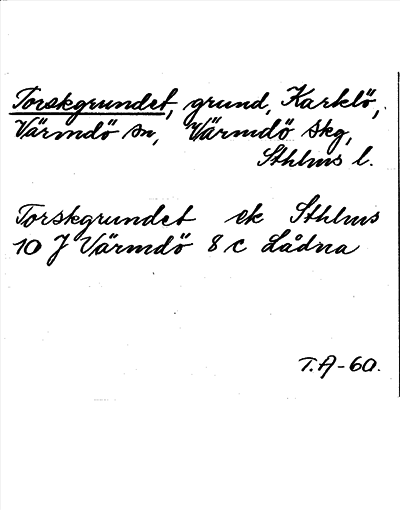 Torskgrundet, grund, Karklö,
Värmdö sn, Värmdö skg,
Sthlms l.
Torskgrundet ek Sthlms
10 J Värmdö 8 c Lådna
T.A-60.